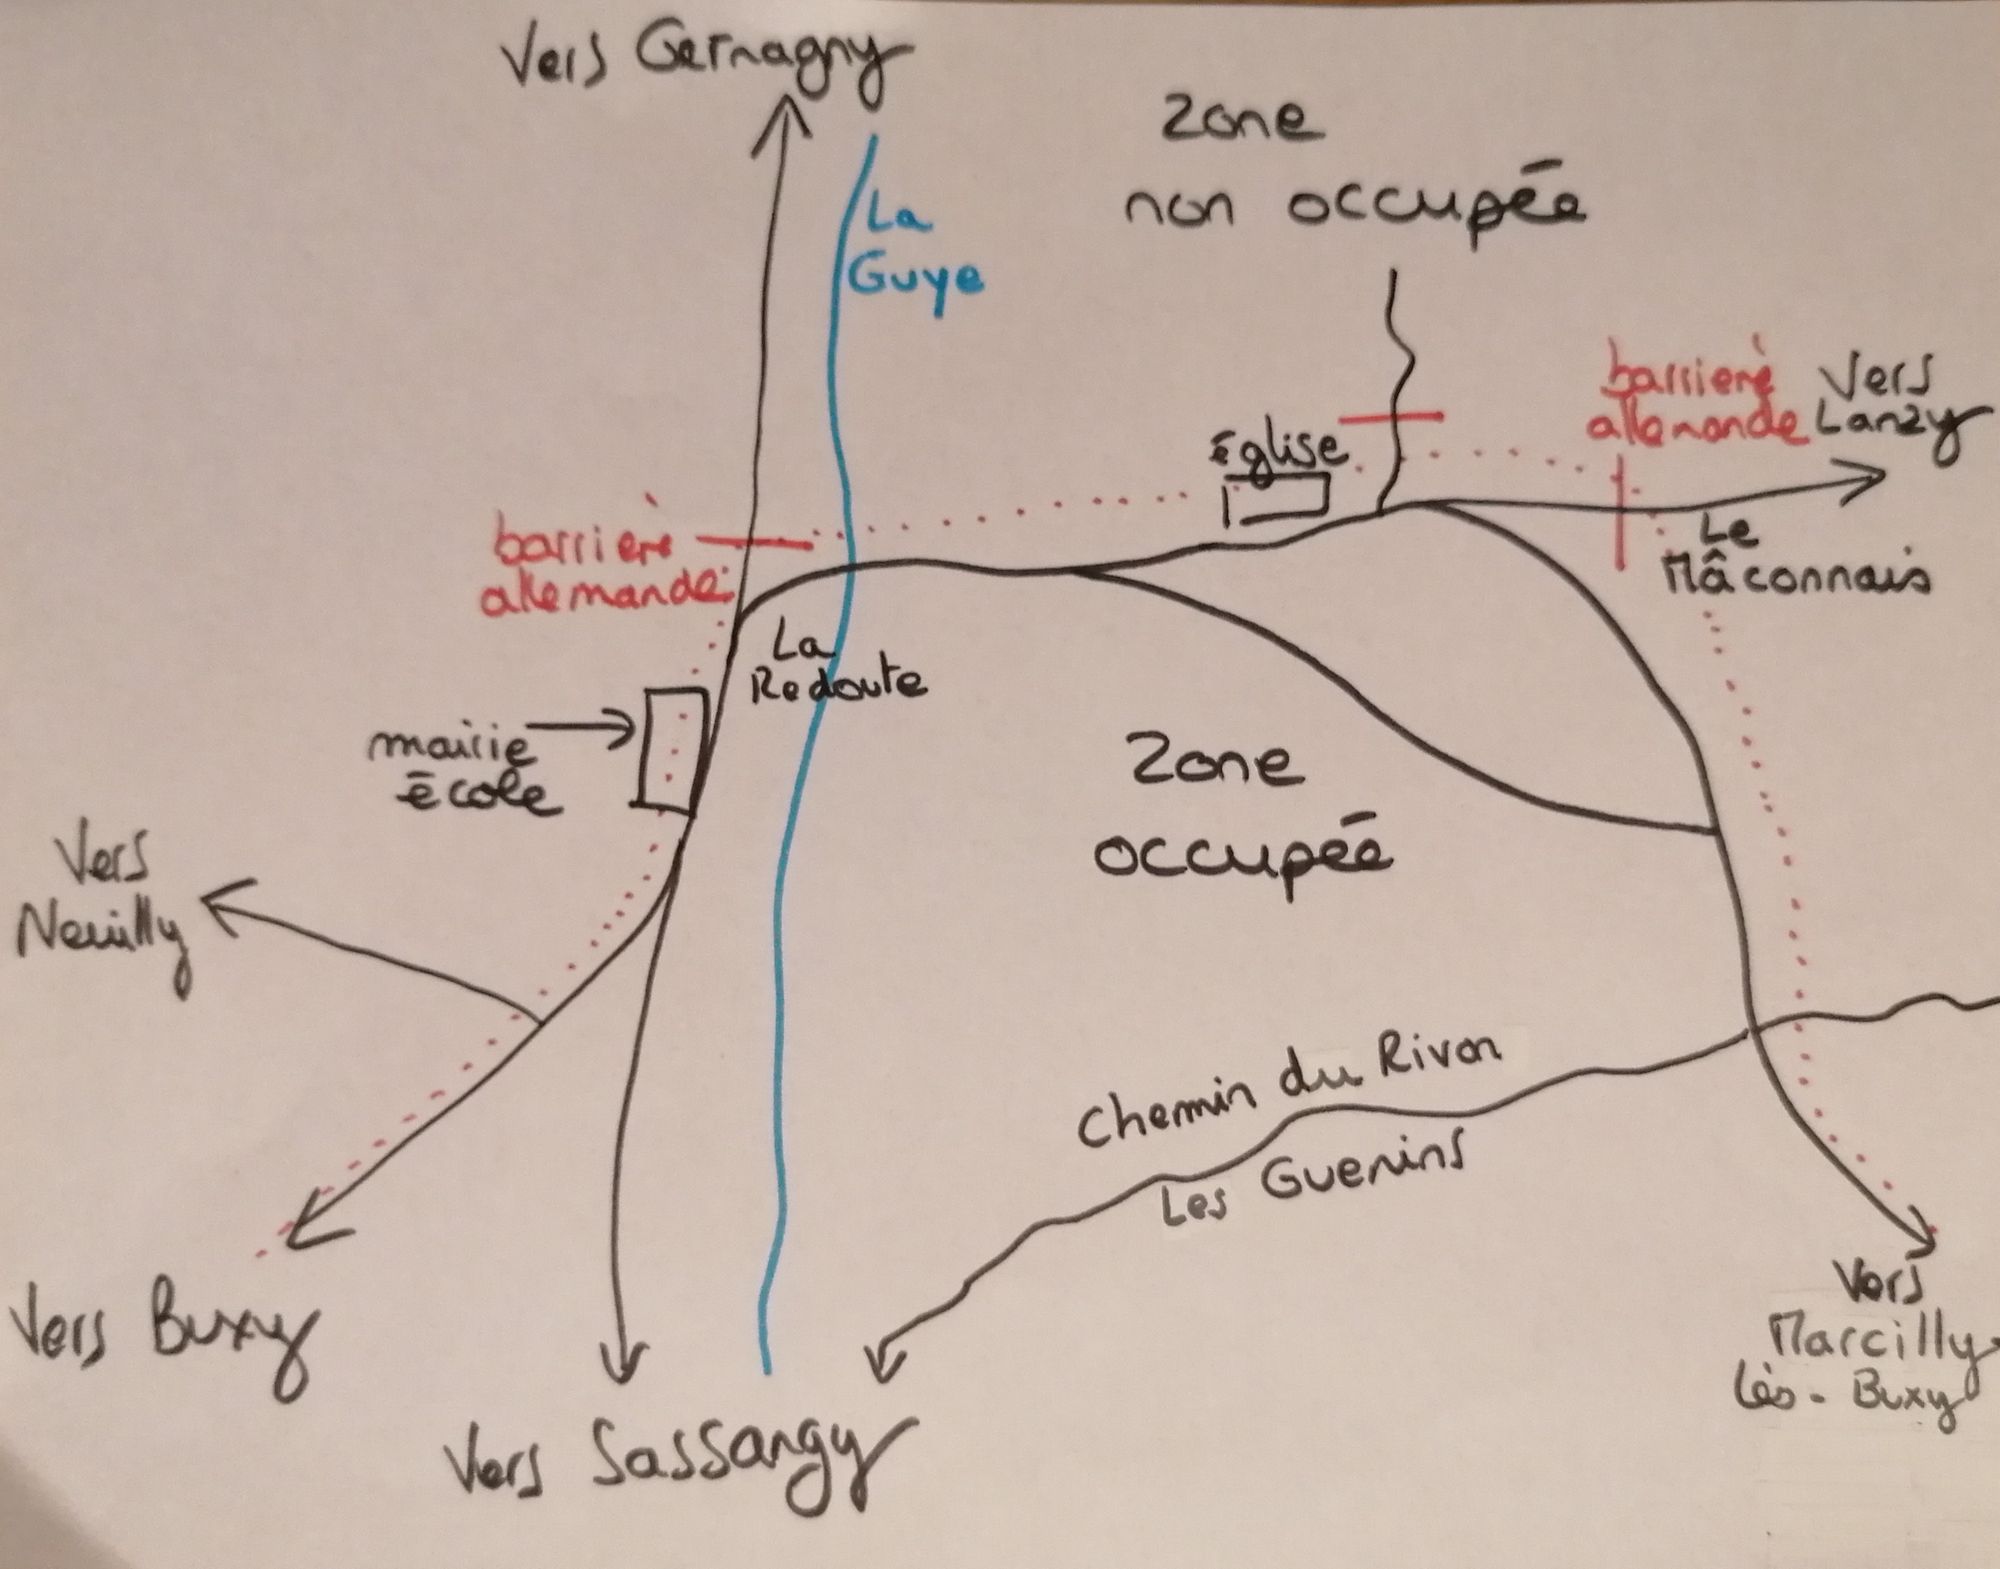 Vers Gernagny
Zone
non occupée
La
Guye
barrière
allemande
Vers
Lanzy
église
barrière
allemande
Le
Mâconnais
La
Redoute
mairie
école
Zone
occupée
Vers
Neuilly
Chemin du Rivon
Les Guenins
Vers Buxy
Vers
Marcilly
lès-Buxy
Vers Sassangy